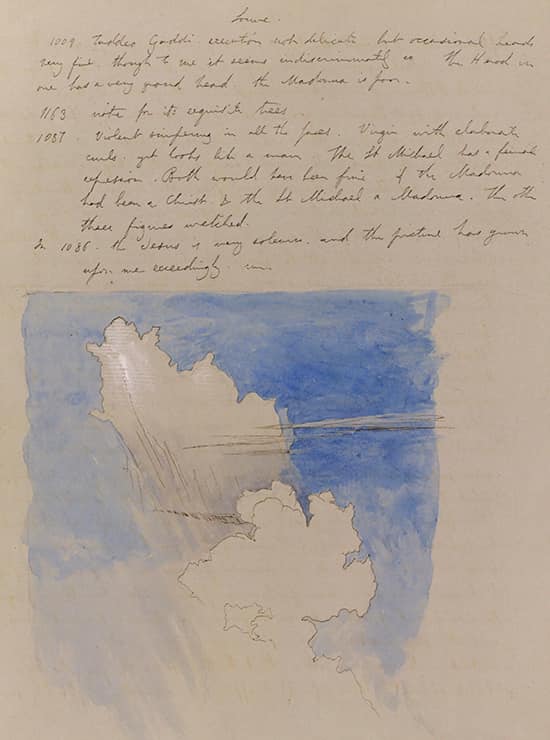 Louvre.
1009 Taddeo Gaddi. execution not delicate but occasional heads
very fine though to me it seems indiscriminately so the Herod in
one has a very grand head. the Madonna is poor.
1163 note for its exquisite trees.
1087 Violent simpering in all the faces. Virgin with elaborate
curls. yet looks like a man. The St Michael has a female
expression. Both would have been fine if the Madonna
had been a Christ & the St Michael a Madonna. The other
three figures wretched.
In 1086. the Jesus is very solemn. and the picture has grown
upon me exceedingly.